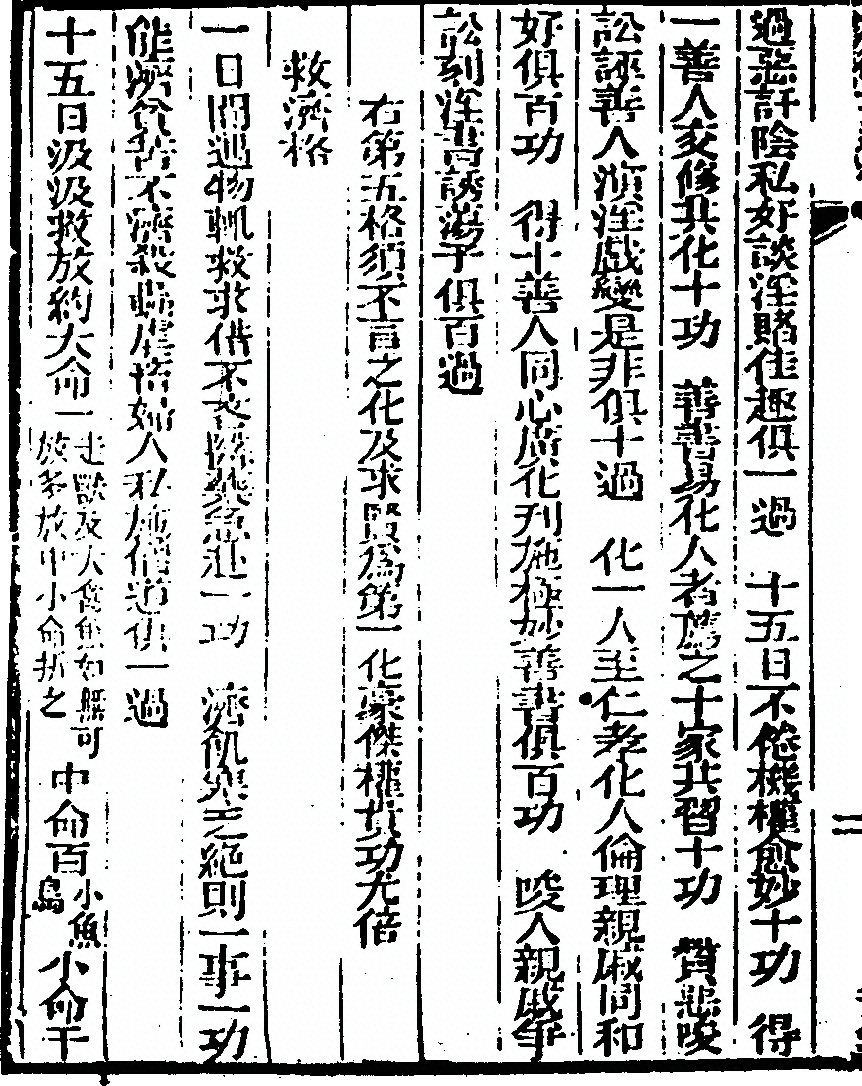 過惡訐陰私好談淫賭佳趣俱一過 十五日不倦機權愈妙十功 得
一善人交修共化十功 善書易化人者廣之十家共習十功 贊惡唆
訟誣善人演淫戲變是非俱十過 化一人至仁孝化人倫理親戚同和
好俱百功 得十善人同心廣化刊施極妙善書俱百功 唆人親戚爭
訟刻淫書誘蕩子俱百過
右第五格須不言之化及求賢為第一化豪傑權貴功尤倍
救濟格
一日間遇物輒救求借不吝 一功 濟飢寒 絕則一事一功
能濟貧苦不濟殺 婦人私施僧道俱一過
十五日汲汲救放約大命一 走獸及大禽魚如 可放多放中小命折之 中命百 小魚鳥 小命千